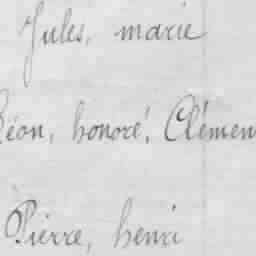 Jules, marie
Léon, honoré, Clémen
Pierre, henri